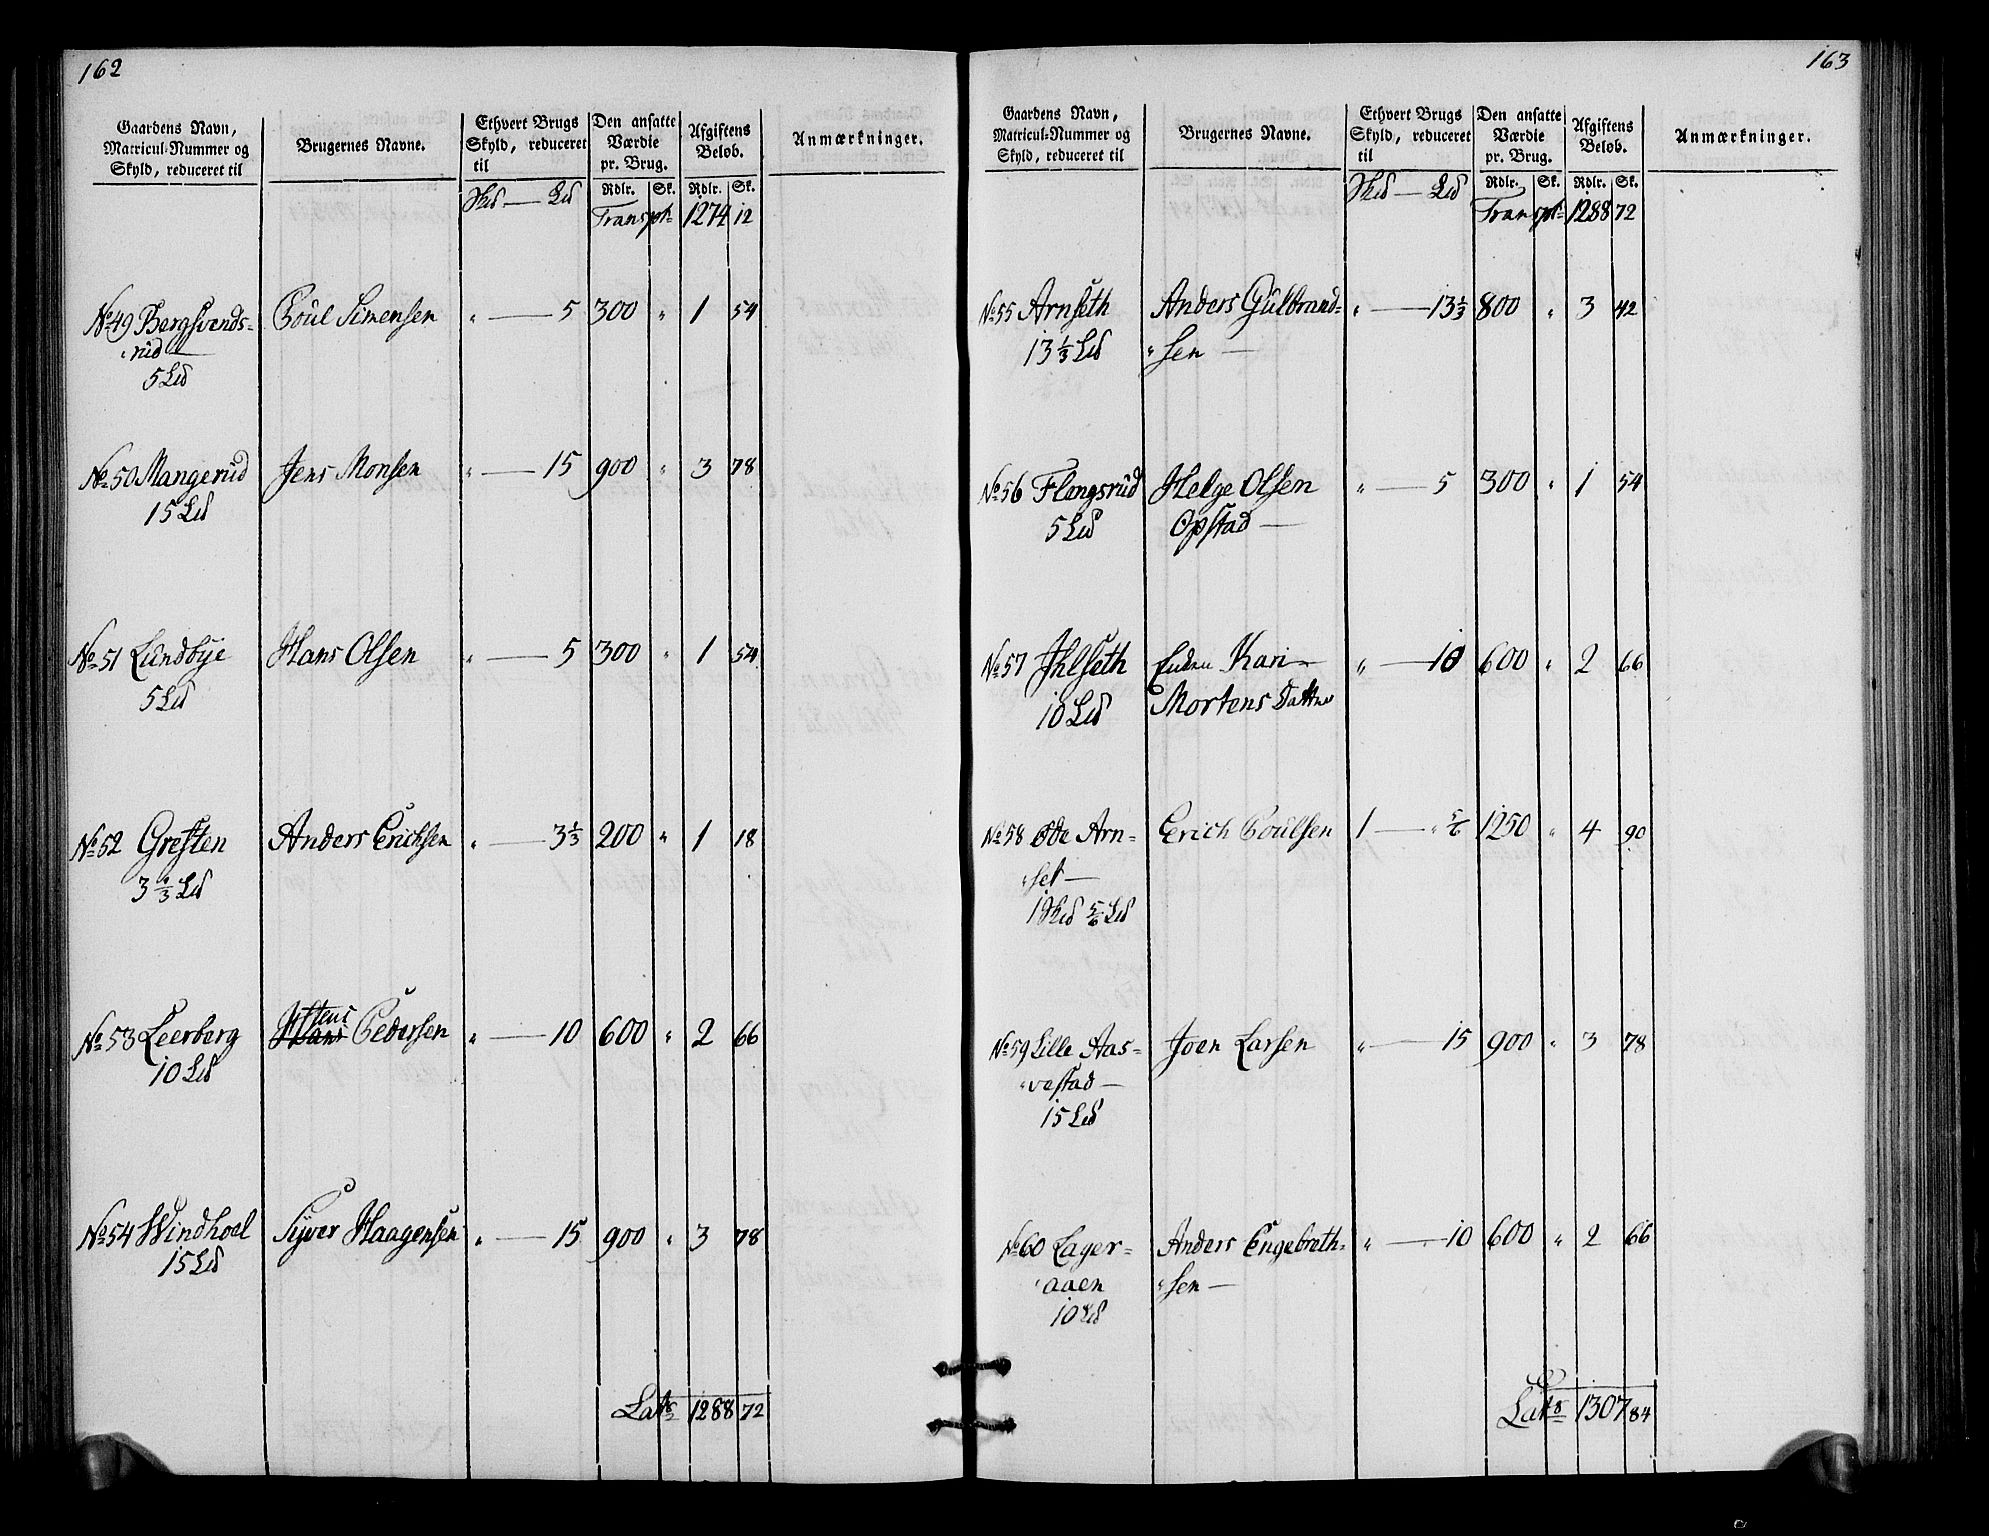 162
Gaardens Navn, Matricul-Nummer og Skyld, reduceret til
Brugernes Navne.
Ethvert Brugs Skyld, reduceret til
Den ansatte Værdie pr. Brug.
Afgiftens Beløb.
Anmærkninger.
Skd — Ld Rdlr. Sk. Rdlr. Sk.
Transpt 1274 12
No 49 Bergsvends- Poul Simensen " — 5 300 " 1 54
"rud —
5 Ld
No 50 Mangerud Jens Monsen " — 15 900 " 3 78
15 Ld
No 51 Lundbye Hans Olsen " — 5 300 " 1 54
5 Ld
No 52 Gresten Anders Erichsen " — 3 1/3 200 " 1 18
3 1/3 Ld
No 53 Leerberg Hans Pedersen " — 10 600 " 2 66
10 Ld
No 54 Windhoel Syver Haagensen " — 15 900 " 3 78
15 Ld
Lats 1288 72
163
Gaardens Navn, Matricul-Nummer og Skyld, reduceret til
Brugernes Navne.
Ethvert Brugs Skyld, reduceret til
Den ansatte Værdie pr. Brug.
Afgiftens Beløb.
Anmærkninger.
Skd — Ld Rdlr. Sk. Rdlr. Sk.
Transpt 1288 72
No 55 Arnseth Anders Gulbrand- " — 13 1/3 800 " 3 42
13 1/3 Ld "sen —
No 56 Flengsrud Helge Olsen " — 5 300 " 1 54
5 Ld Opstad —
No 57 Ihlseth Enken Kari " — 10 600 " 2 66
10 Ld Mortens Datter
No 58 Øde Arn- Erich Poulsen 1 — " 5/6 1250 " 4 90
"set —
1 Skd 5/6 Ld
No 59 Lille Aas- Joen Larsen " — 15 900 " 3 78
"vestad —
15 Ld
No 60 Lager- Anders Engebreth- " — 10 600 " 2 66
"aaen "sen —
10 Ld
Lats 1307 84